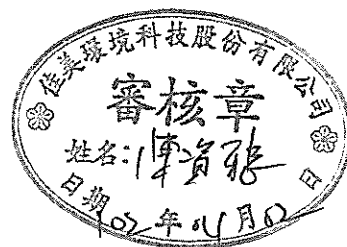 佳美環境科技股份有限公司
審核章
姓名:陳資
日期 102 年 04 月 02 日